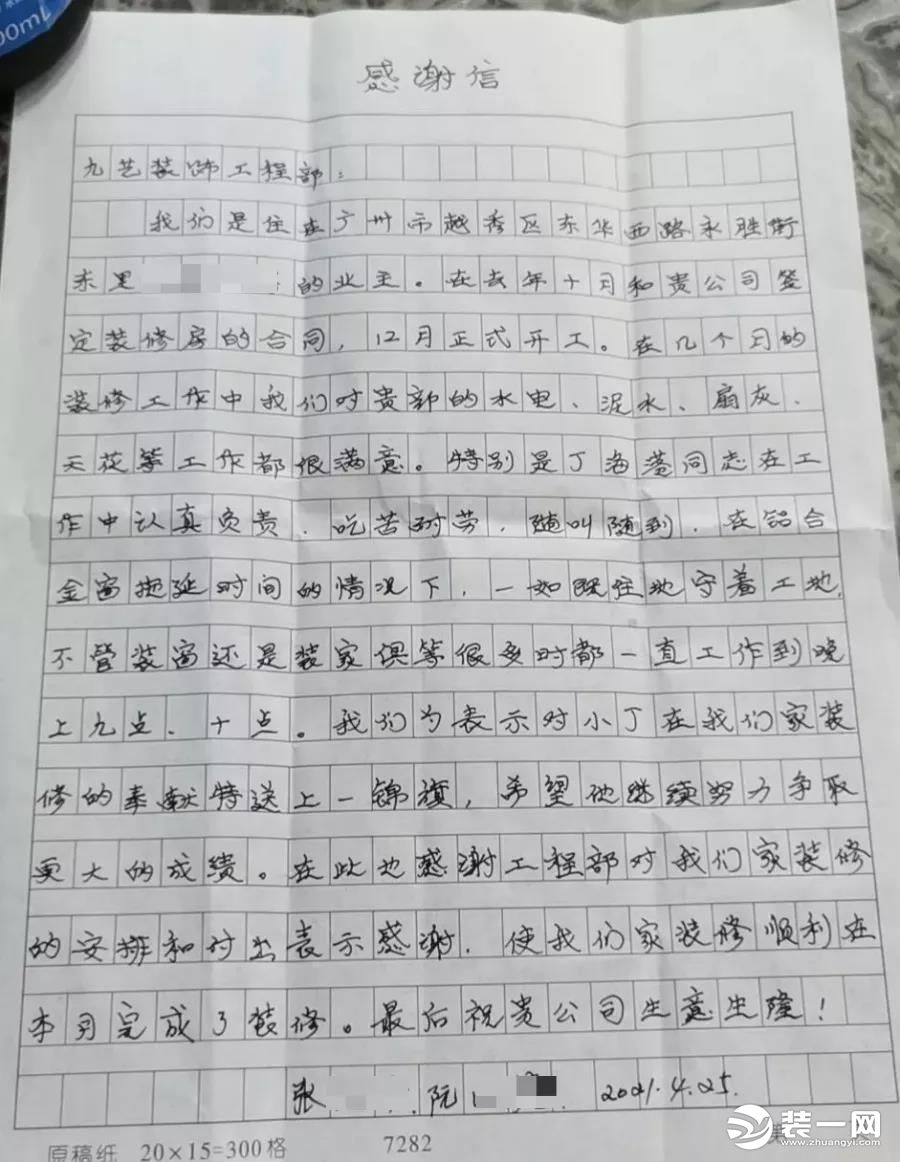 00ml
感谢信
九艺装饰工程部：
我们是住在广州市越秀区东华西路永胜街
东里 的业主。在去年十月和贵公司签
定装修房的合同，12月正式开工。在几个月的
装修工作中我们对贵部的水电、泥水、扇灰、
天花等工作都很满意。特别是丁海 同志在工
作中认真负责、吃苦耐劳，随叫随到，在铝合
金窗拖延时间的情况下，一如既往地守着工地，
不管装窗还是装家俱等很多时都一直工作到晚
上九点、十点。我们为表示对小丁在我们家装
修的奉献特送上一锦旗，希望他继续努力争取
更大的成绩。在此也感谢工程部对我们家装修
的安排和付出表示感谢，使我们家装修顺利在
本月完成了装修。最后祝贵公司生意生隆！
张 阮 2021.4.25.
原稿纸 20×15=300格 7282
装一网
www.zhuangyi.com